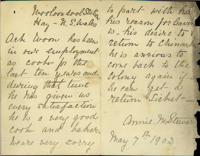 Hay - N. S. Wales
Ah Woon has been
in our employment
as cook for the
last ten years and
during that time
he has given us
every satisfaction
he is a very good
cook and baker
we are very sorry
to part with him
his reason for leaving
is, his desire to
return to China
he is anxious to
come back to the
colony again if
he can get a
return ticket -
Annie McStewart
May 7th 1902